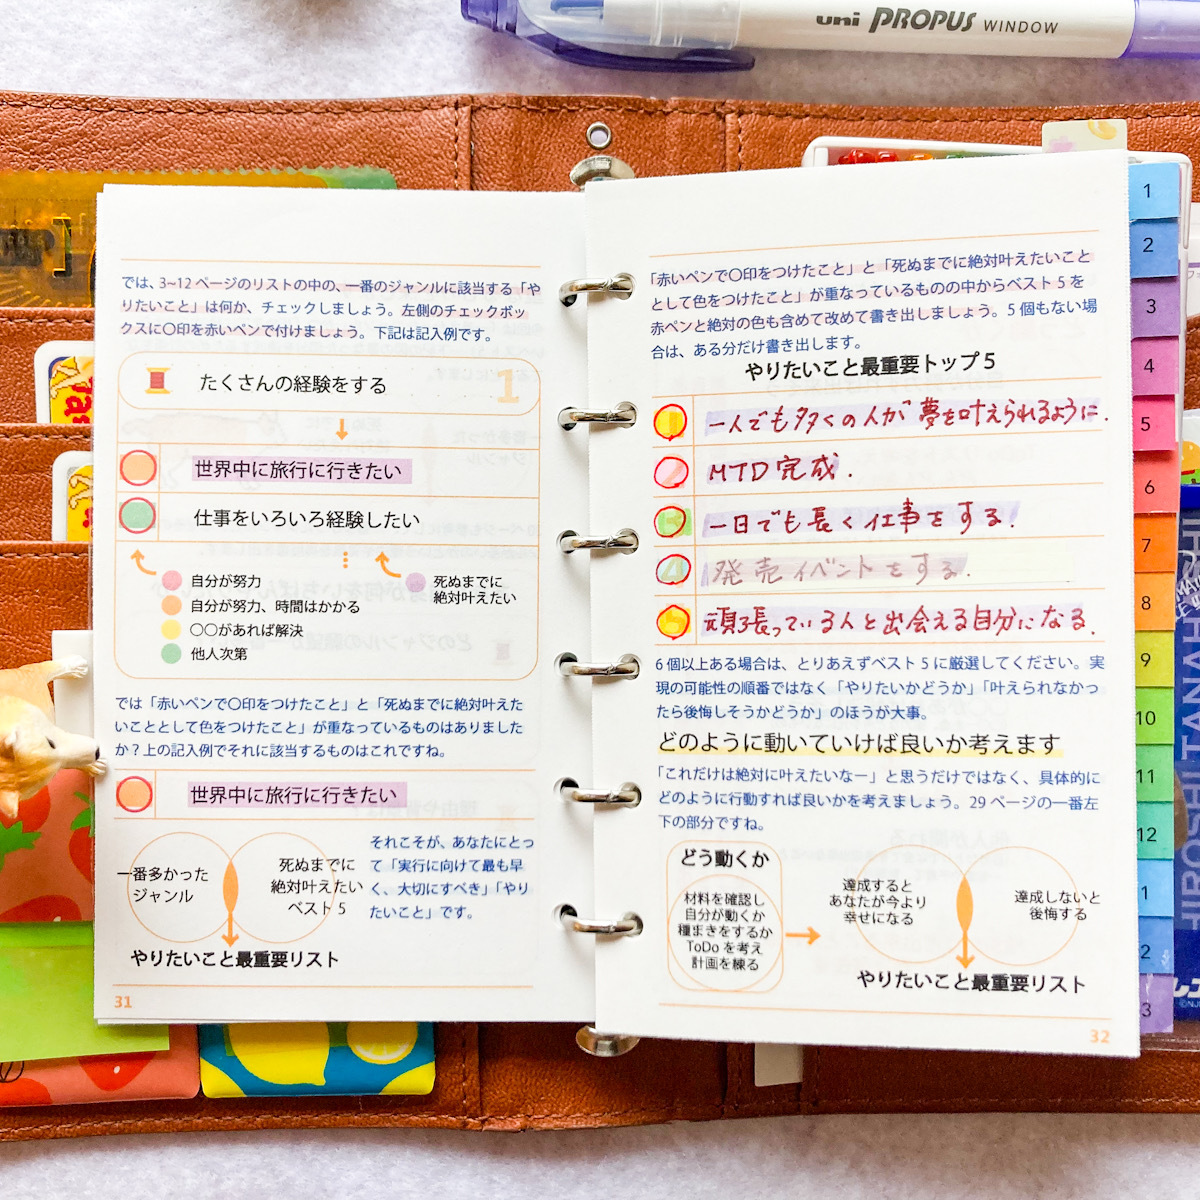 uni PROPUS WINDOW
では、3~12 ページのリストの中の、一番のジャンルに該当する「や
りたいこと」は何か、チェックしましょう。左側のチェックボッ
クスに〇印を赤いペンで付けましょう。下記は記入例です。
たくさんの経験をする
1
世界中に旅行に行きたい
仕事をいろいろ経験したい
自分が努力
自分が努力、時間はかかる
〇〇があれば解決
他人次第
死ぬまでに
絶対叶えたい
では「赤いペンで〇印をつけたこと」と「死ぬまでに絶対叶えた
いこととして色をつけたこと」が重なっているものはありました
か？上の記入例でそれに該当するものはこれですね。
世界中に旅行に行きたい
一番多かった
ジャンル
死ぬまでに
絶対叶えたい
ベスト 5
それこそが、あなたにとっ
て「実行に向けて最も早
く、大切にすべき」「やり
たいこと」です。
やりたいこと最重要リスト
31
「赤いペンで〇印をつけたこと」と「死ぬまでに絶対叶えたいこと
として色をつけたこと」が重なっているものの中からベスト 5 を
赤ペンと絶対の色も含めて改めて書き出しましょう。5 個もない場
合は、ある分だけ書き出します。
やりたいこと最重要トップ 5
1 一人でも多くの人が夢を叶えられるように.
2 MTD完成.
3 一日でも長く仕事をする.
4 発売イベントをする.
5 頑張っている人と出会える自分になる.
6 個以上ある場合は、とりあえずベスト 5 に厳選してください。実
現の可能性の順番ではなく「やりたいかどうか」「叶えられなかっ
たら後悔しそうかどうか」のほうが大事。
どのように動いていけば良いか考えます
「これだけは絶対に叶えたいなー」と思うだけではなく、具体的に
どのように行動すれば良いかを考えましょう。29 ページの一番左
下の部分ですね。
どう動くか
材料を確認し
自分が動くか
種まきをするか
ToDo を考え
計画を練る
達成すると
あなたが今より
幸せになる
達成しないと
後悔する
やりたいこと最重要リスト
32
1
2
3
4
5
6
7
8
9
10
11
12
1
2
3
HIROSHI TANAHASHI